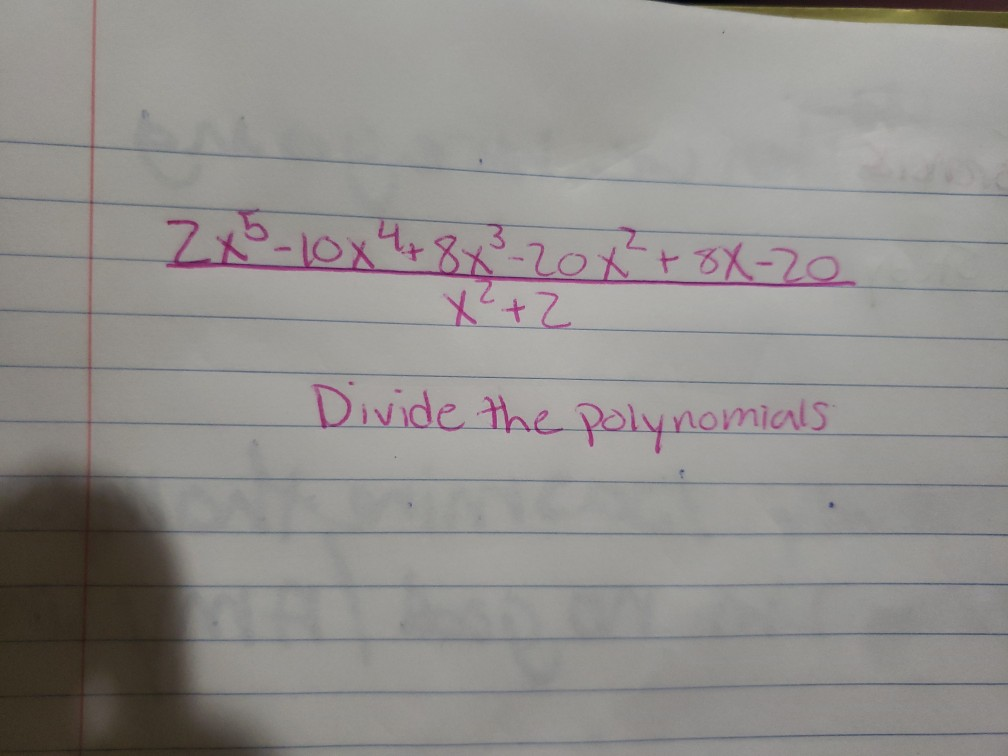 2x⁵-10x⁴+8x³-20x²+8x-20
x²+2
Divide the polynomials